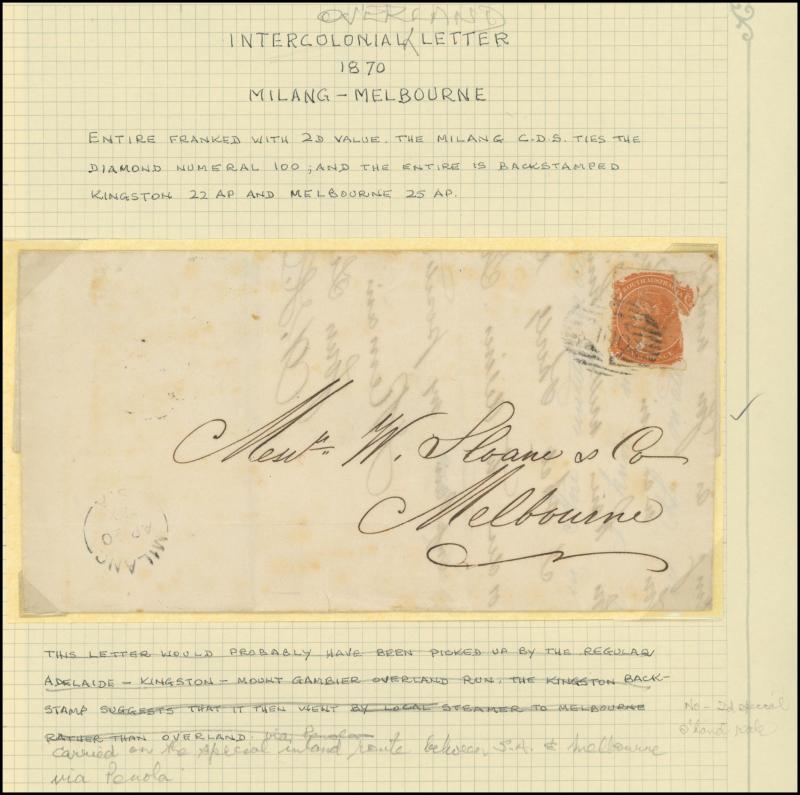 OVERLAND
INTERCOLONIAL LETTER
1870
MILANG - MELBOURNE
ENTIRE FRANKED WITH 2D VALUE. THE MILANG C.D.S. TIES THE
DIAMOND NUMERAL 100; AND THE ENTIRE IS BACKSTAMPED
KINGSTON 22 AP AND MELBOURNE 25 AP.
SOUTH AUSTRALIA
Messrs. W. Sloane & Co
Melbourne
MILANG
AP 20
S.A
THIS LETTER WOULD PROBABLY HAVE BEEN PICKED UP BY THE REGULAR
ADELAIDE - KINGSTON - MOUNT GAMBIER OVERLAND RUN. THE KINGSTON BACK-
STAMP SUGGESTS THAT IT THEN WENT BY LOCAL STEAMER TO MELBOURNE
RATHER THAN OVERLAND. via Penola
carried on the special inland route between S.A. & Melbourne
via Penola
No - 2d special
rate